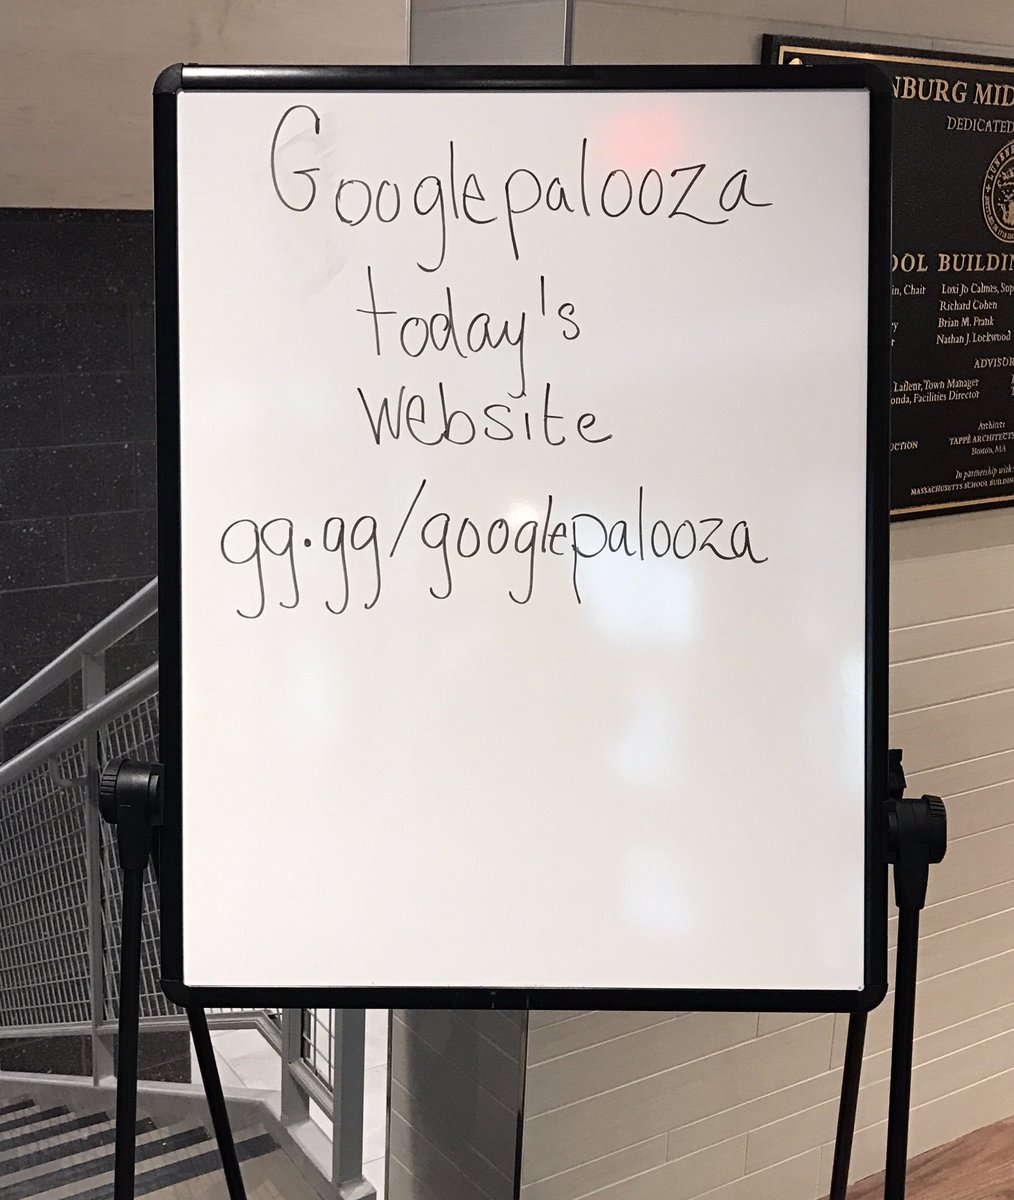 Googlepalooza
today's
website
gg.gg/googlepalooza
NBURG MID
DEDICATED
OOL BUILDIN
in, Chair Loxi Jo Calmes, Sup
Richard Cohen
Brian M. Frank
Nathan J. Lockwood
ADVISOR
Lafleur, Town Manager
onda, Facilities Director
Architect
UCTION TAPPÉ ARCHITECTS
Boston, MA
In partnership with:
MASSACHUSETTS SCHOOL BUILDIN